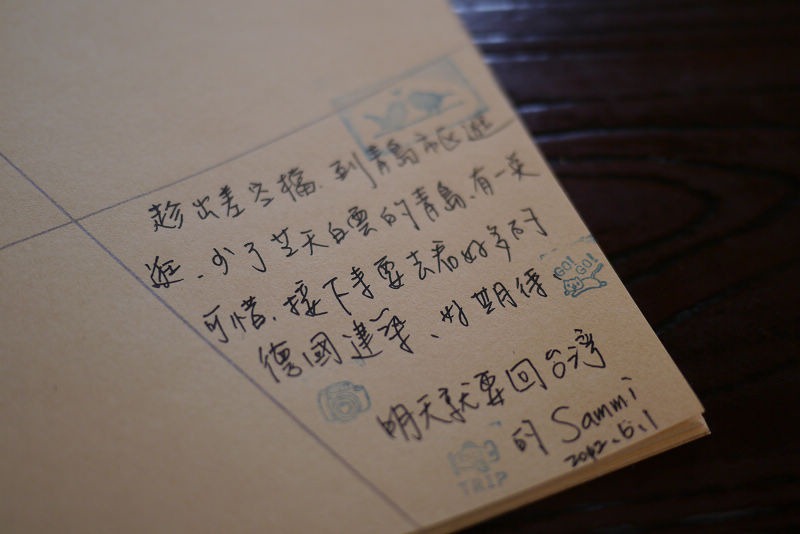 趁出差空檔.到青島市區逛
逛.少了天白雲的青島.有一奌
可惜.接下來要去看好多
德國建築、好期待
GO! GO!
明天就要回台灣
的 Sammi
2012.5.1
TRIP